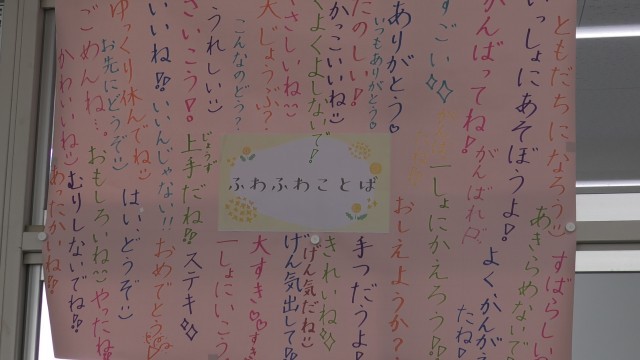 ともだちになろう
すばらしい
いっしょにあそぼうよ!
あきらめないで
がんばってね!
がんばれ
よくかんがえたね!
すごい
一しょにかえろう
ありがとう
おしえようか?
いつもありがとう
たのしい!
手つだうよ!
かっこいいね
きれいね
くよくよしないで!
げん気だね
やさしいね
げん気出して!
大じょうぶ?
大すき
こんなのどう?
一しょにいこう
うれしい
じょうず
上手だね!
ステキ
さいこう!
いいね!
いいんじゃない!!
おめでとう
ゆっくり休んでね
はい、どうぞ
お先にどうぞ
おもしろいね
やったね
ごめんね…
むりしないでね!
かわいいね
ふわふわことば